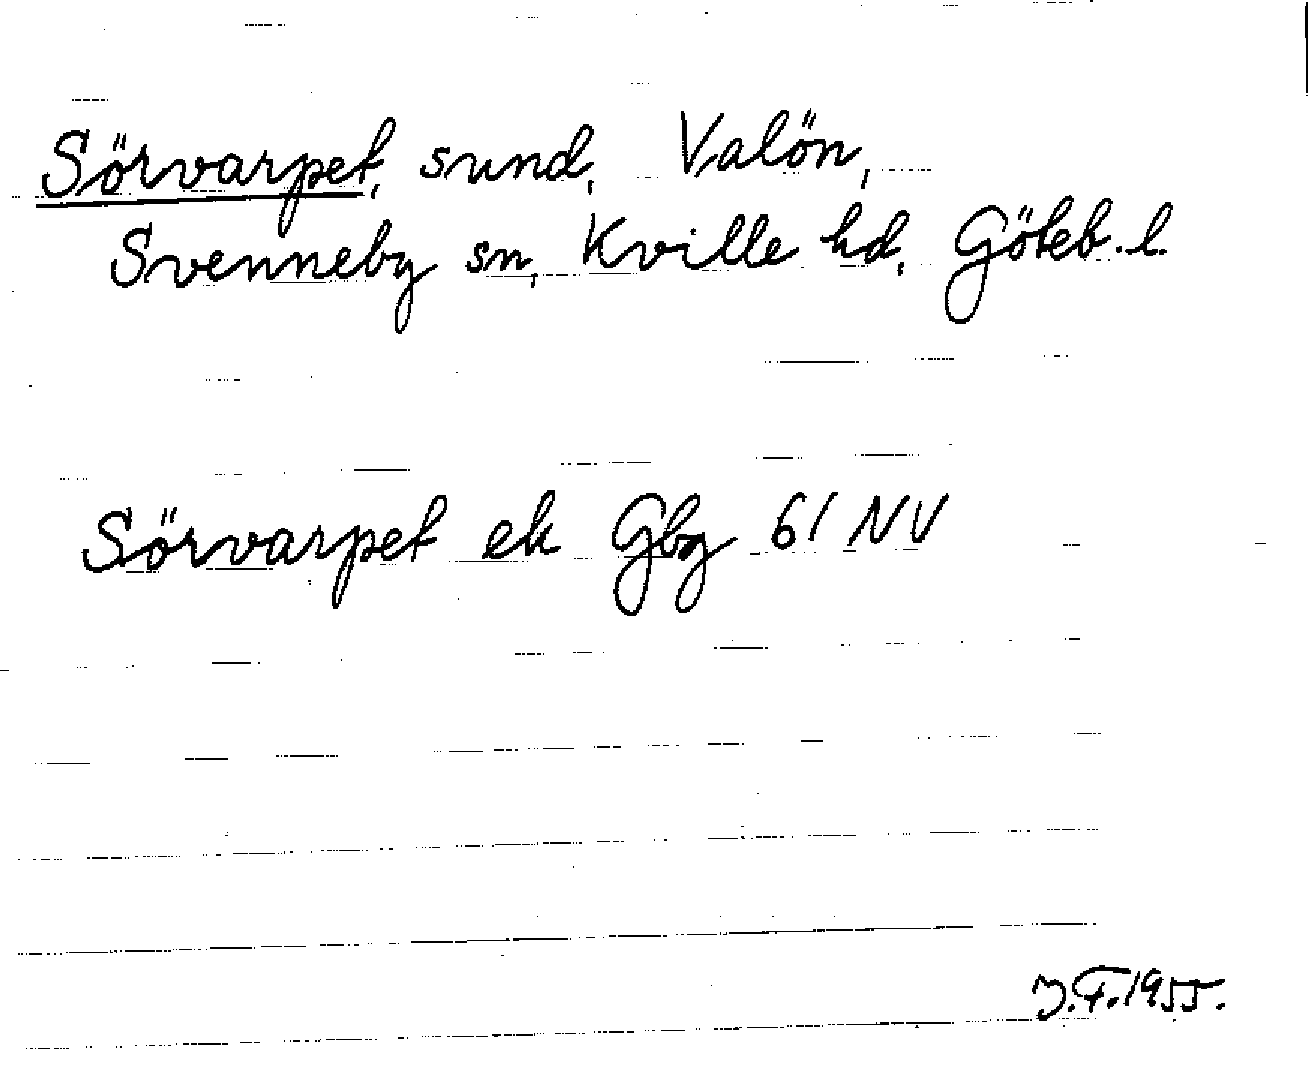 Sörvarpet, sund, Valön,
Svenneby sn, Kville hd, Göteb. l.
Sörvarpet ek Gbg 61 NV
J.F. 1955.